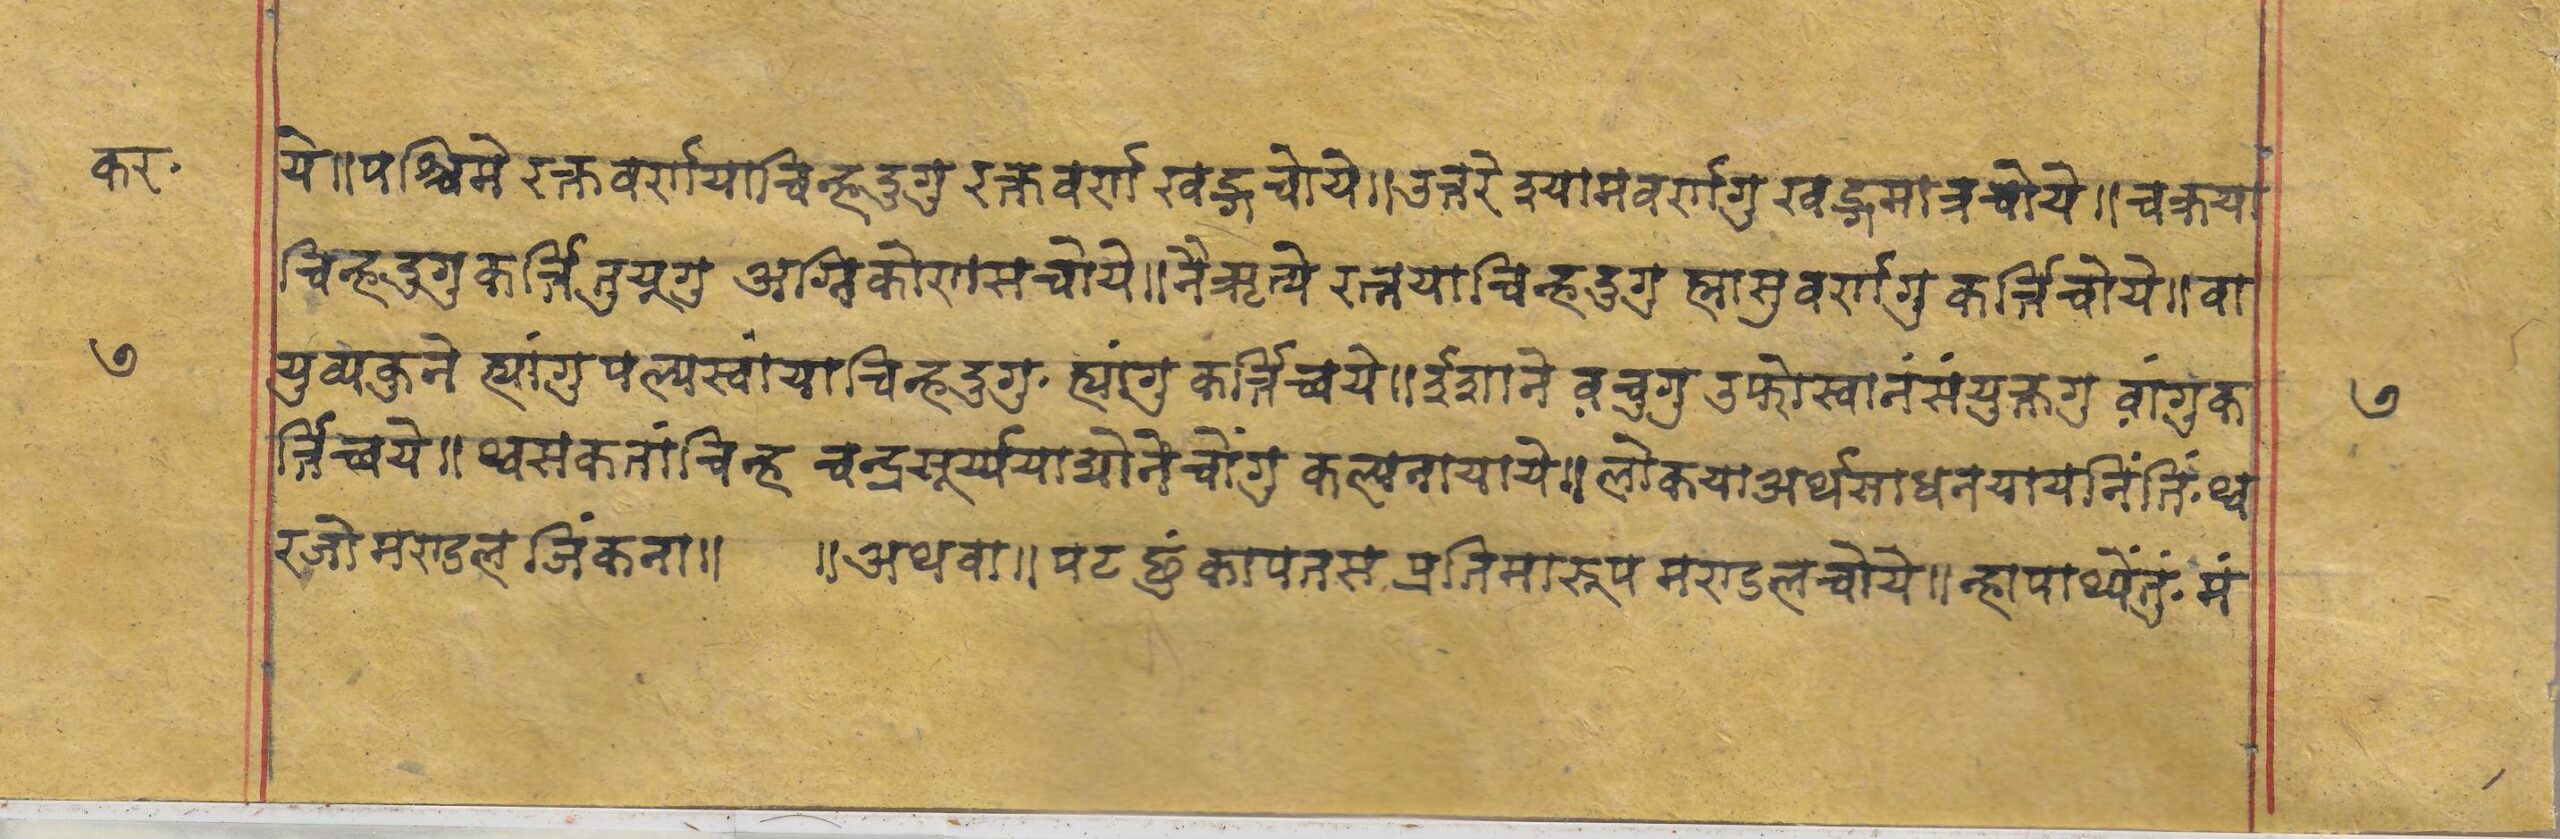 कर॰
ये॥पश्चिमे रक्तवर्णयाचिन्हदुगु रक्तवर्ण खड्गचोये॥उत्तरे श्यामवर्णगु खड्गमात्रचोये॥चक्रया
चिन्हदुगुकर्त्तितुयूगु अग्निकोणसचोये॥नैऋत्ये रत्नयाचिन्हदुगु ह्मासुवर्णगु कर्त्तिचोये॥वा
७
युव्यकुने ह्यांगुपल्यस्वांयाचिन्हदुगु॰ ह्यांगु कर्त्तिच्वये॥ईशाने वचुगु उफोस्वानंसंयुक्तगु वांगुक
७
र्त्तिच्वये॥थ्वसकतांचिन्ह चन्द्रसूर्य्ययाद्योनेचोंगु कल्पनायाये॥लोकयाअर्थसाधनयायनिंतिं॰थ्व
रजोमण्डल जिंकना॥ ॥अथवा॥पट छुं कापतस प्रतिमारूप मण्डलचोये॥न्हापाथ्येंतुं॰मं